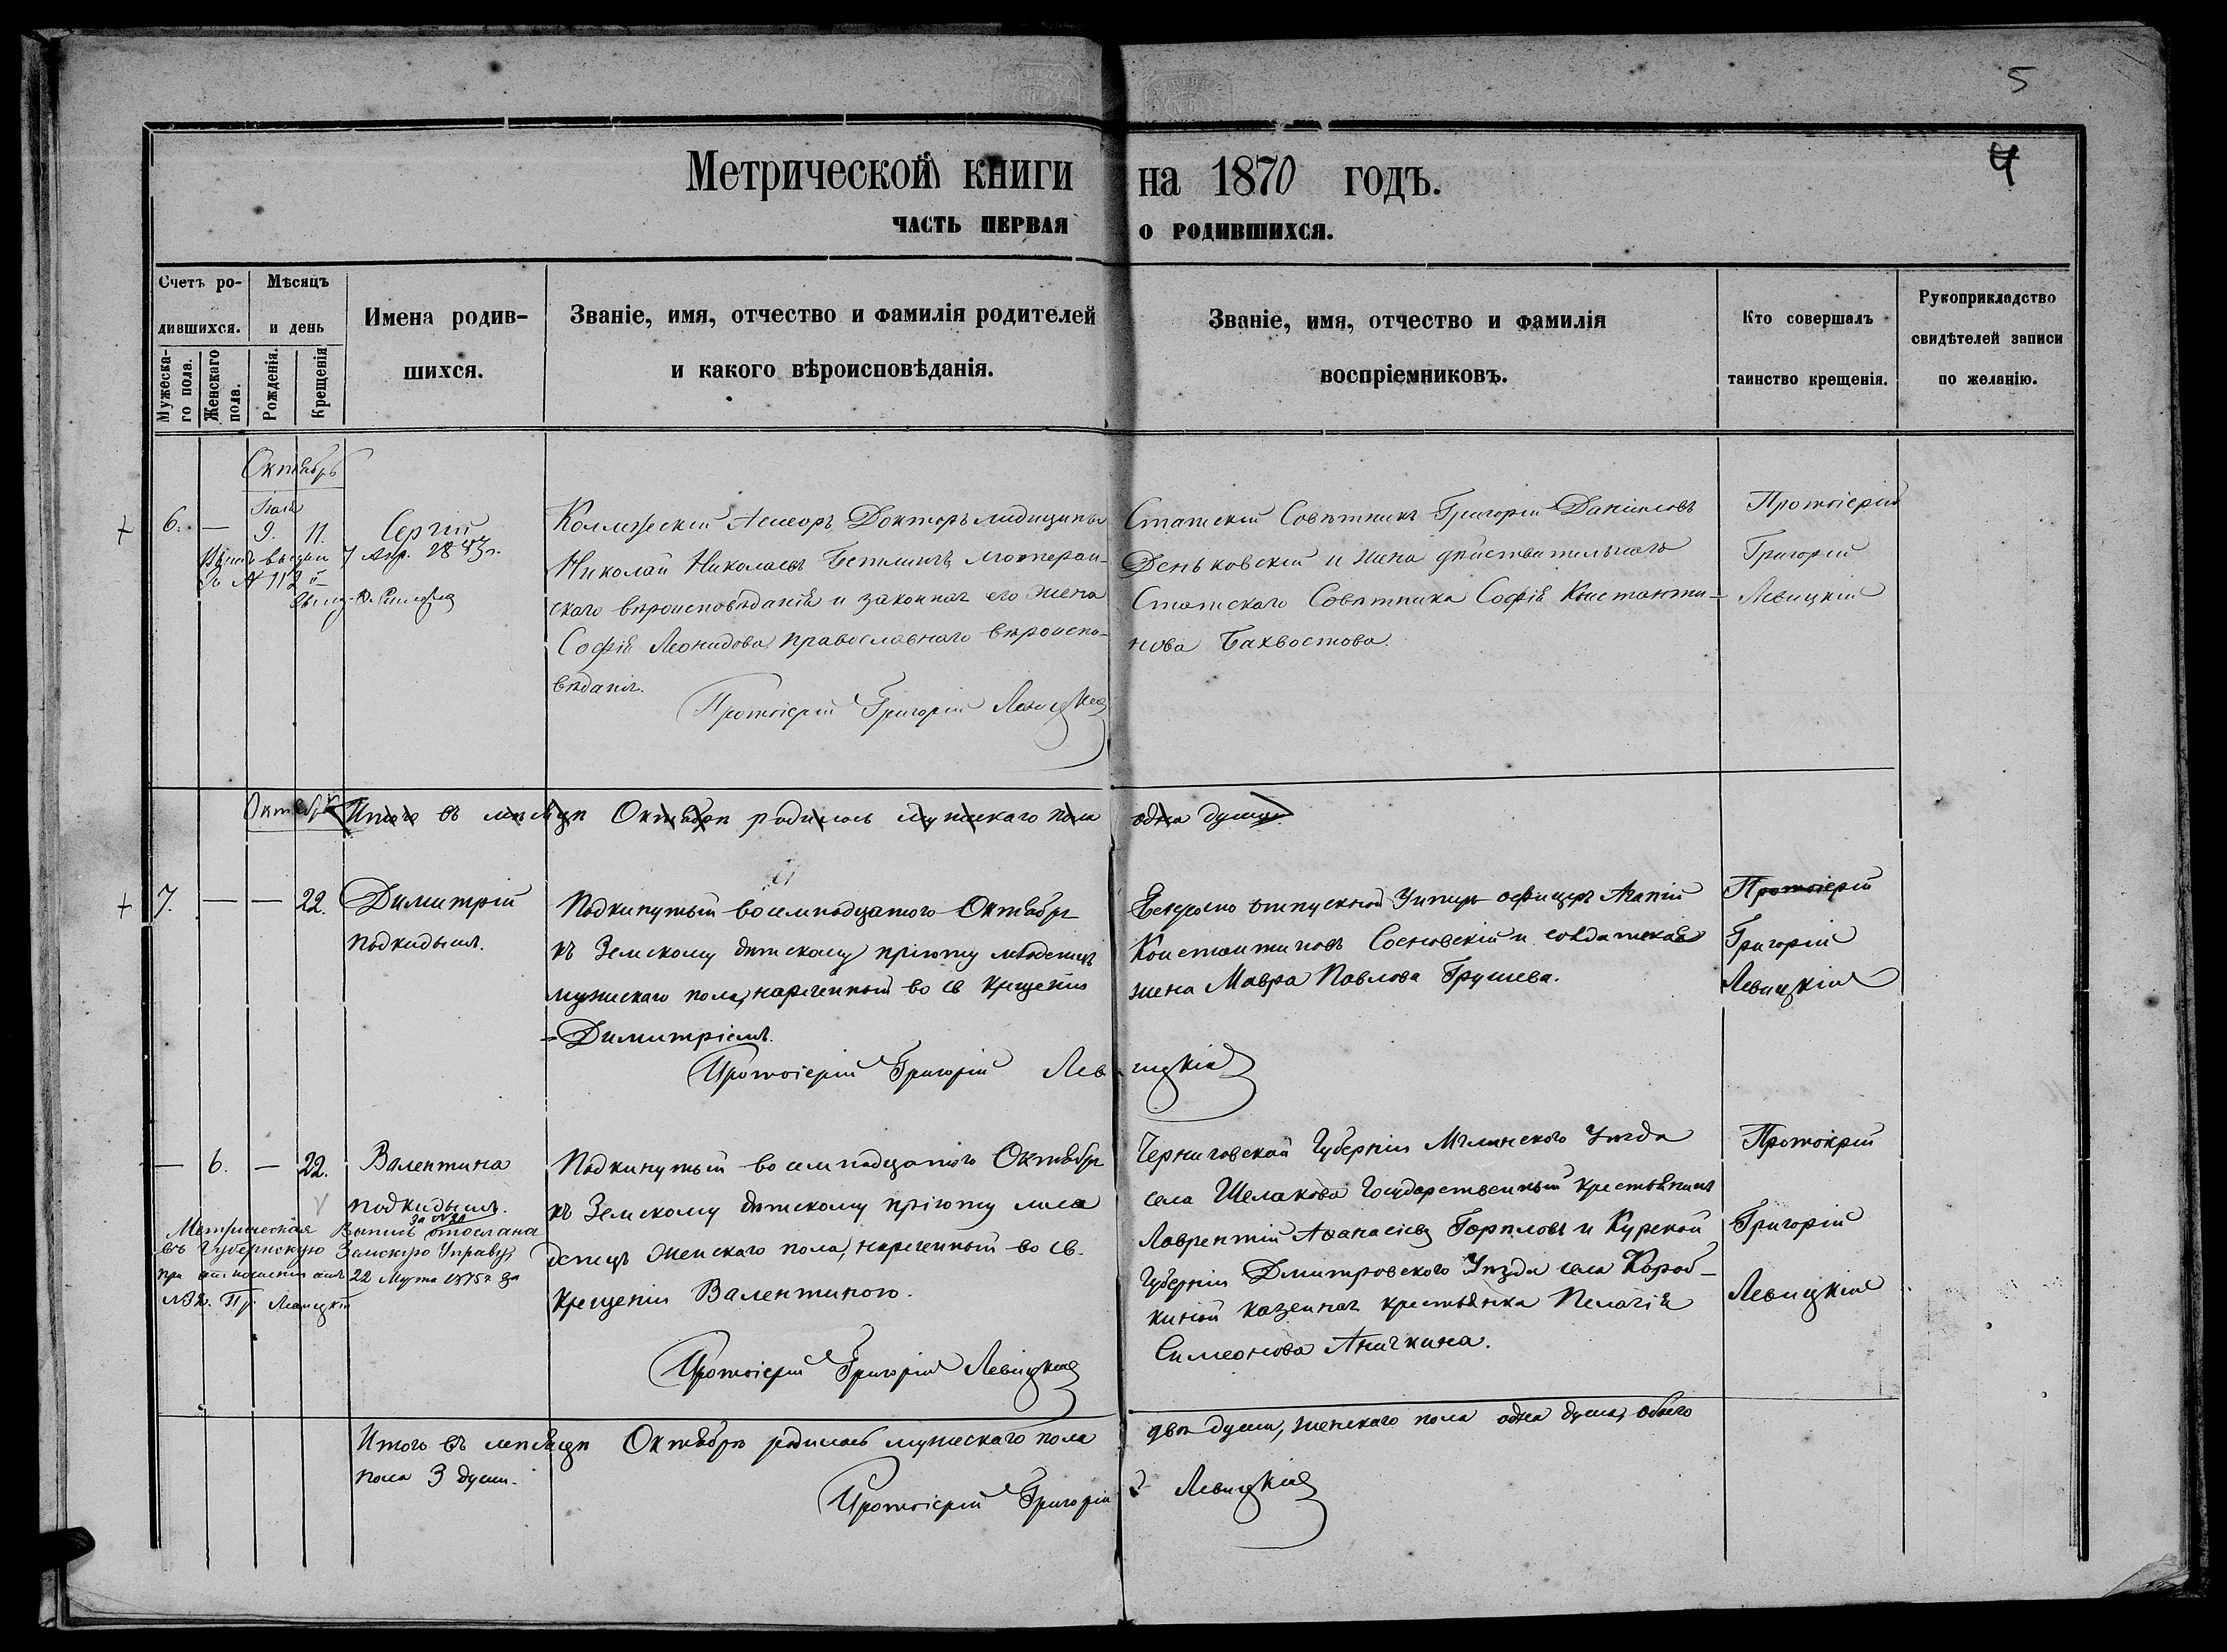 5
4
Метрической книги на 1870 годъ.
ЧАСТЬ ПЕРВАЯ О РОДИВШИХСЯ.
Счетъ ро-
дившихся.
Мужеска-
го пола.
Женскаго
пола.
Мѣсяцъ
и день
Рожденія.
Крещенія
Имена родив-
шихся.
Званіе, имя, отчество и фамилія родителей
и какого вѣроисповѣданія.
Званіе, имя, отчество и фамилія
воспріемниковъ.
Кто совершалъ
таинство крещенія.
Рукоприкладство
свидѣтелей записи
по желанію.
Октябрь
6. — 9. 11.
Сергій
7 Апр.
№ 112
Коллежскій Асесоръ Докторъ медицины
Николай Николаевъ лютеран-
скаго вѣроисповѣданія и законная его жена
Софія Леонидова, православнаго вѣроиспо-
вѣданія.
Протоіерей Григорій Левицкій
Статскій Совѣтникъ Григорій Даніиловъ
Деньковскій и жена дѣйствительнаго
Статскаго Совѣтника Софія Константи-
нова Бахвостова.
Протоіерей
Григорій
Левицкій
Октябрь
Итого въ мѣсяцѣ Октябрѣ родилось мужескаго пола одна душа
7. — — 22.
Димитрій
подкидышъ.
Подкинутый восемнадцатого Октября
къ Земскому дѣтскому пріюту младенецъ
мужескаго пола, нареченный во св крещеніи
Димитріемъ.
Протоіерей Григорій Левицкій
Безсрочно отпускной Унтеръ офицеръ Агапій
Константиновъ Сосновскій и солдатская
жена Мавра Павлова Грушева.
Протоіерей
Григорій
Левицкій
— 6. — 22.
Валентина
подкидышъ.
Метрическая Выпись за №30 отослана
въ Губернскую Земскую Управу,
при отношеніи отъ 22 Марта 1875 г за
Пр. Левицкій
Подкинутый восемнадцатого Октября
къ Земскому дѣтскому пріюту мла
денецъ женскаго пола, нареченный во св.
крещеніи Валентиною.
Протоіерей Григорій Левицкій
Черниговской Губерніи Мглинского Уѣзда
села Шелакова Государственный крестьянинъ
Лаврентій Аѳанасіевъ Горпловъ и Курской
Губерніи Дмитровского Уѣзда села Короб-
киной казенная крестьянка Пелагія
Симеонова Аничкина.
Протоіерей
Григорій
Левицкій
Итого въ мѣсяцѣ Октябрѣ родилось мужескаго пола двѣ души, женскаго пола одна душа, обоего
пола 3 души.
Протоіерей Григорій Левицкій